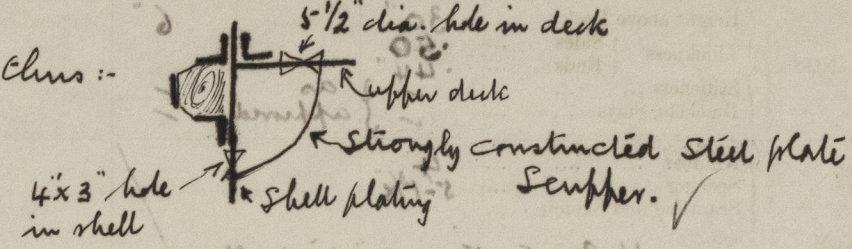 5 1/2" dia. hole in deck
Thus :-
upper deck
Strongly constructed Steel plate
Scupper.
4"x 3" hole
in shell
Shell plating